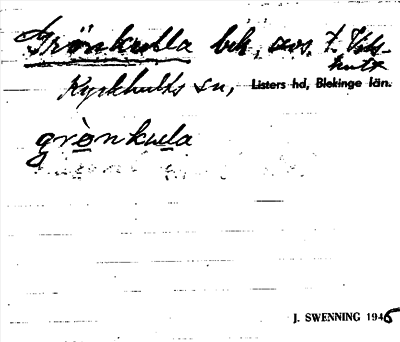 Grönkulla beb., avs. f. Vils-
hult
Kyrkhults sn, Listers hd, Blekinge län.
grònkula
J. SWENNING 1945